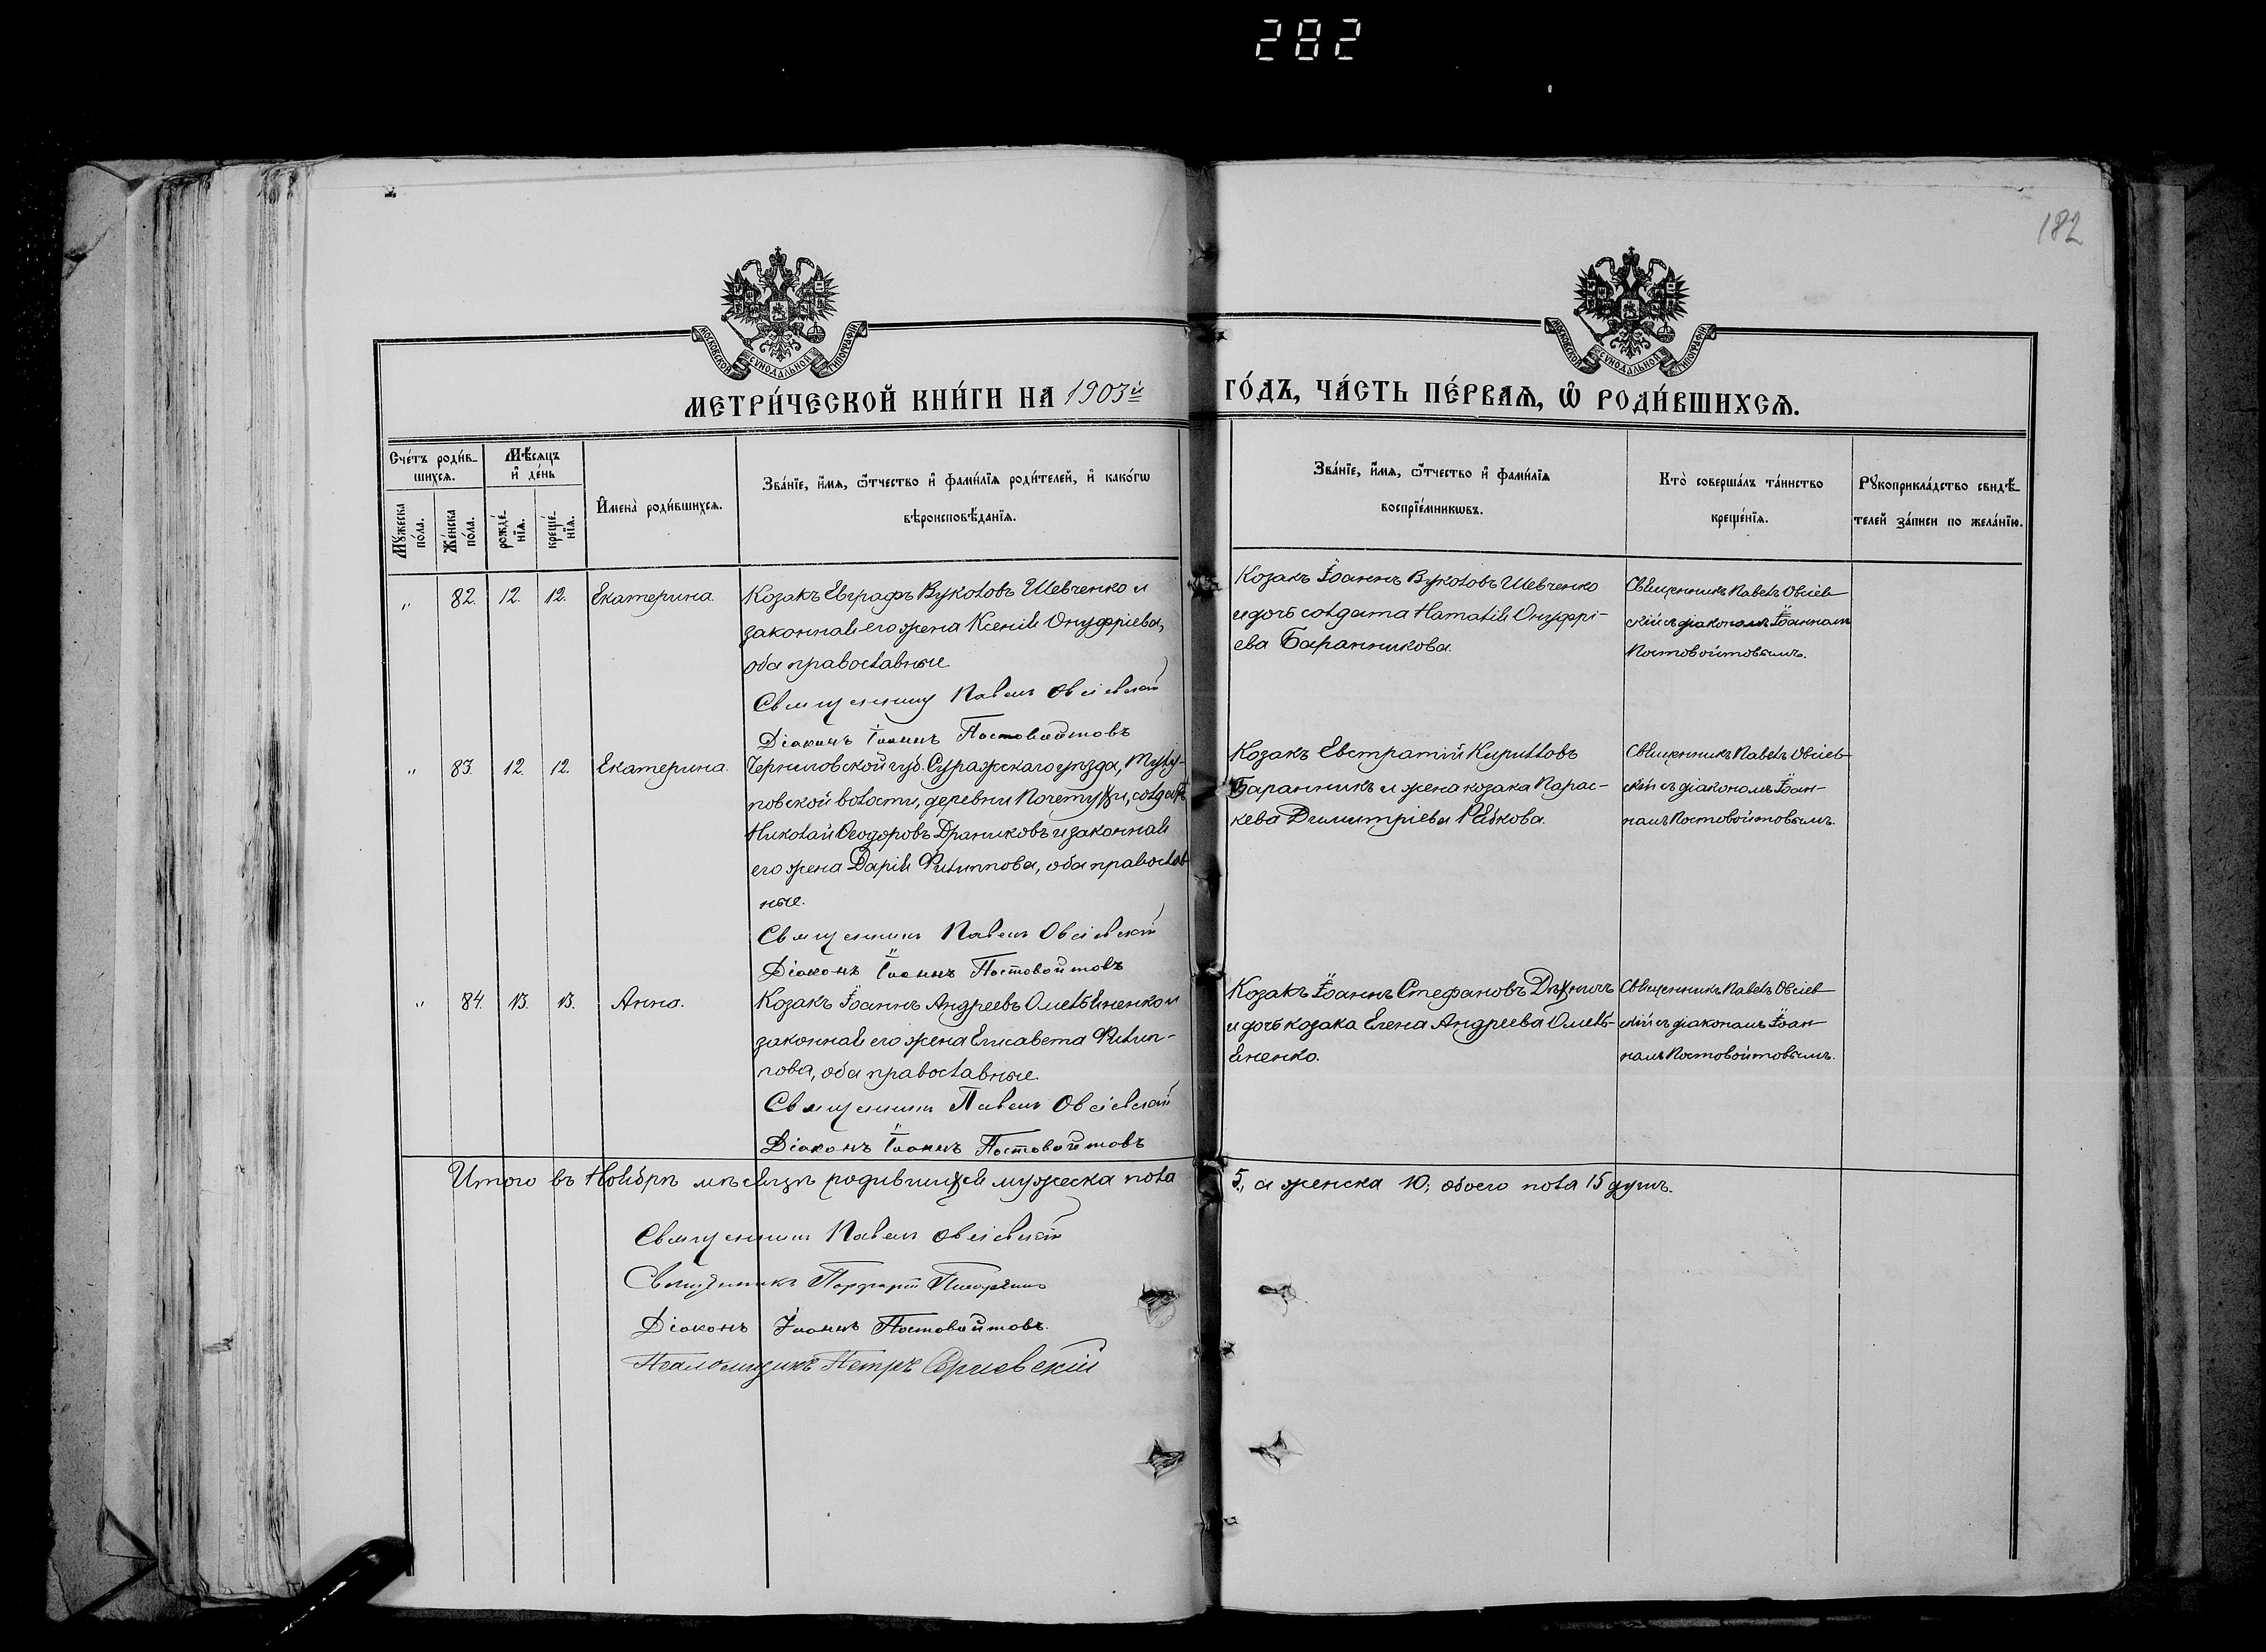 282
182
МОСКОВСКОЙ СѴНОДАЛЬНОЙ ТИПОГРАФІИ
МОСКОВСКОЙ СѴНОДАЛЬНОЙ ТИПОГРАФІИ
МЕТРИ́ЧЕСКОЙ КНИ́ГИ НА 1903й ГО́ДЪ, ЧА́СТЬ ПЕ́РВАѦ, Ѿ РОДИ́ВШИХСѦ.
Сче́тъ роди́в-
шихсѧ.
Мѣ́сяцъ
и҆ де́нь
Мꙋ́жеска
по́ла.
Же́нска
по́ла.
рожде́-
нїѧ.
креще́-
нїѧ.
И҆мена̀ роди́вшихсѧ.
Зва́нїе, и҆́мѧ, ѻ҆́тчество и҆ фами́лїѧ роди́телей, и҆ како́гѡ
вѣроисповѣ́данїѧ.
Зва́нїе, и҆́мѧ, ѻ҆́тчество и҆ фами́лїѧ
воспрїе́мникѡвъ.
Кто̀ соверша́лъ та́инство
креще́нїѧ.
Рꙋкоприкла́дство свидѣ́-
телей за́писи по жела́нїю.
" 82. 12. 12. Екатерина.
Козакъ Евграфъ Вуколовъ Шевченко и
законная его жена Ксенія Онуфріева,
оба православные.
Священникъ Павелъ Овсіевскій
Діаконъ Іоаннъ Постовойтовъ
Козакъ Іоаннъ Вуколовъ Шевченко
и дочь солдата Наталія Онуфрі-
ева Баранникова.
Священникъ Павелъ Овсіев-
скій съ діакономъ Іоанномъ
Постовойтовымъ.
" 83. 12. 12. Екатерина.
Черниговской губ. Суражскаго уѣзда,
повской волости, деревни солдатъ
Николай Ѳеодоровъ Драниковъ и законная
его жена Дарія Филиппова, оба православ-
ные.
Священникъ Павелъ Овсіевскій
Діаконъ Іоаннъ Постовойтовъ
Козакъ Евстратій Кирилловъ
Баранникъ и жена козака Парас-
кева Димитріева Рябкова.
Священникъ Павелъ Овсіев-
скій съ діакономъ Іоан-
номъ Постовойтовымъ.
" 84. 13. 13. Анна.
Козакъ Іоаннъ Андреевъ Омельяненко и
законная его жена Елисавета Филип-
пова, оба православные.
Священникъ Павелъ Овсіевскій
Діаконъ Іоаннъ Постовойтовъ
Козакъ Іоаннъ Стефановъ
и дочь козака Елена Андреева Омель-
яненко.
Священникъ Павелъ Овсіев-
скій съ діакономъ Іоан-
номъ Постовойтовымъ.
Итого въ Ноябрѣ мѣсяцѣ родившихся мужеска пола 5, а женска 10; обоего пола 15 душъ.
Священникъ Павелъ Овсіевскій
Священникъ
Діаконъ Іоаннъ Постовойтовъ.
Псаломщикъ Петръ